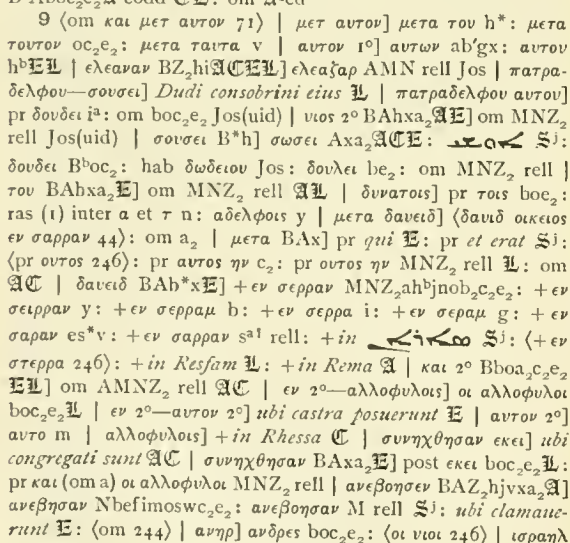 9 ⟨om και μετ αυτον 71⟩ | μετ αυτον] μετα του h*: μετα
τουτον oc₂e₂: μετα ταυτα v | αυτον 1°] αυτων ab'gx: αυτου
hᵇ𝕰𝕷 | ελεαναν BZ₂hi𝕬𝕮𝕰𝕷] ελεαζαρ AMN rell Jos | πατρα-
δελφου—σουσει] Dudi consobrini eius 𝕷 | πατραδελφου αυτου]
pr δουδει iᵃ: om boc₂e₂ Jos(uid) | υιος 2° BAhxa₂𝕬𝕰] om MNZ₂
rell Jos(uid) | σουσει B*h] σωσει Axa₂𝕬𝕮𝕰: Sʲ:
δουδει Bᵇoc₂: hab δωδειου Jos: δουλει be₂: om MNZ₂ rell |
του BAhxa₂𝕰] om MNZ₂ rell 𝕬𝕷 | δυνατοις] pr τοις boe₂:
ras (1) inter α et τ n: αδελφοις y | μετα δαυειδ] ⟨δαυιδ οικειος
εν σαρραν 44⟩: om a₂ | μετα BAx] pr qui 𝕰: pr et erat Sʲ:
⟨pr ουτος 246⟩: pr αυτος ην c₂: pr ουτος ην MNZ₂ rell 𝕷: om
𝕬𝕮 | δαυειδ BAb*x𝕰] +εν σερραν MNZ₂ahᵇjnob₂c₂e₂: +εν
σειρραν y: +εν σερραμ b: +εν σερρα i: +εν σεραμ g: +εν
σαραν es*v: +εν σαρραν sᵃ¹ rell: +in Sʲ: ⟨+εν
στερρα 246⟩: +in Resfam 𝕷: +in Rema 𝕬 | και 2° Bboa₂c₂e₂
𝕰𝕷] om AMNZ₂ rell 𝕬𝕮 | εν 2°—αλλοφυλοις] οι αλλοφυλοι
boc₂e₂𝕷 | εν 2°—αυτον 2°] ubi castra posuerunt 𝕰 | αυτον 2°]
αυτο m | αλλοφυλοις] +in Rhessa 𝕮 | συνηχθησαν εκει] ubi
congregati sunt 𝕬𝕮 | συνηχθησαν BAxa₂𝕰] post εκει boc₂e₂𝕷:
pr και (om a) οι αλλοφυλοι MNZ₂ rell | ανεβοησεν BAZ₂hjvxa₂𝕬]
ανεβησαν Nbefimoswc₂e₂: ανεβοησαν M rell Sʲ: ubi clamaue-
runt 𝕰: ⟨om 244⟩ | ανηρ] ανδρες boc₂e₂: ⟨οι υιοι 246⟩ | ισραηλ